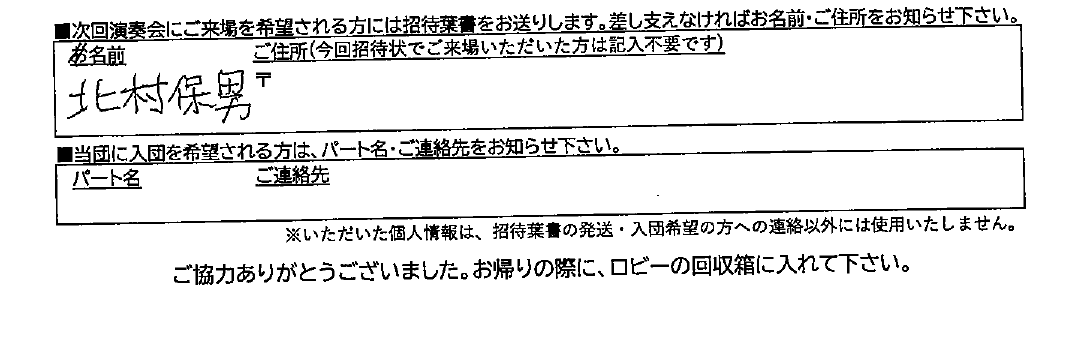 ■次回演奏会にご来場を希望される方には招待葉書をお送りします。差し支えなければお名前・ご住所をお知らせ下さい。
お名前 ご住所(今回招待状でご来場いただいた方は記入不要です)
北村保男 〒
■当団に入団を希望される方は、パート名・ご連絡先をお知らせ下さい。
パート名 ご連絡先
※いただいた個人情報は、招待葉書の発送・入団希望の方への連絡以外には使用いたしません。
ご協力ありがとうございました。お帰りの際に、ロビーの回収箱に入れて下さい。